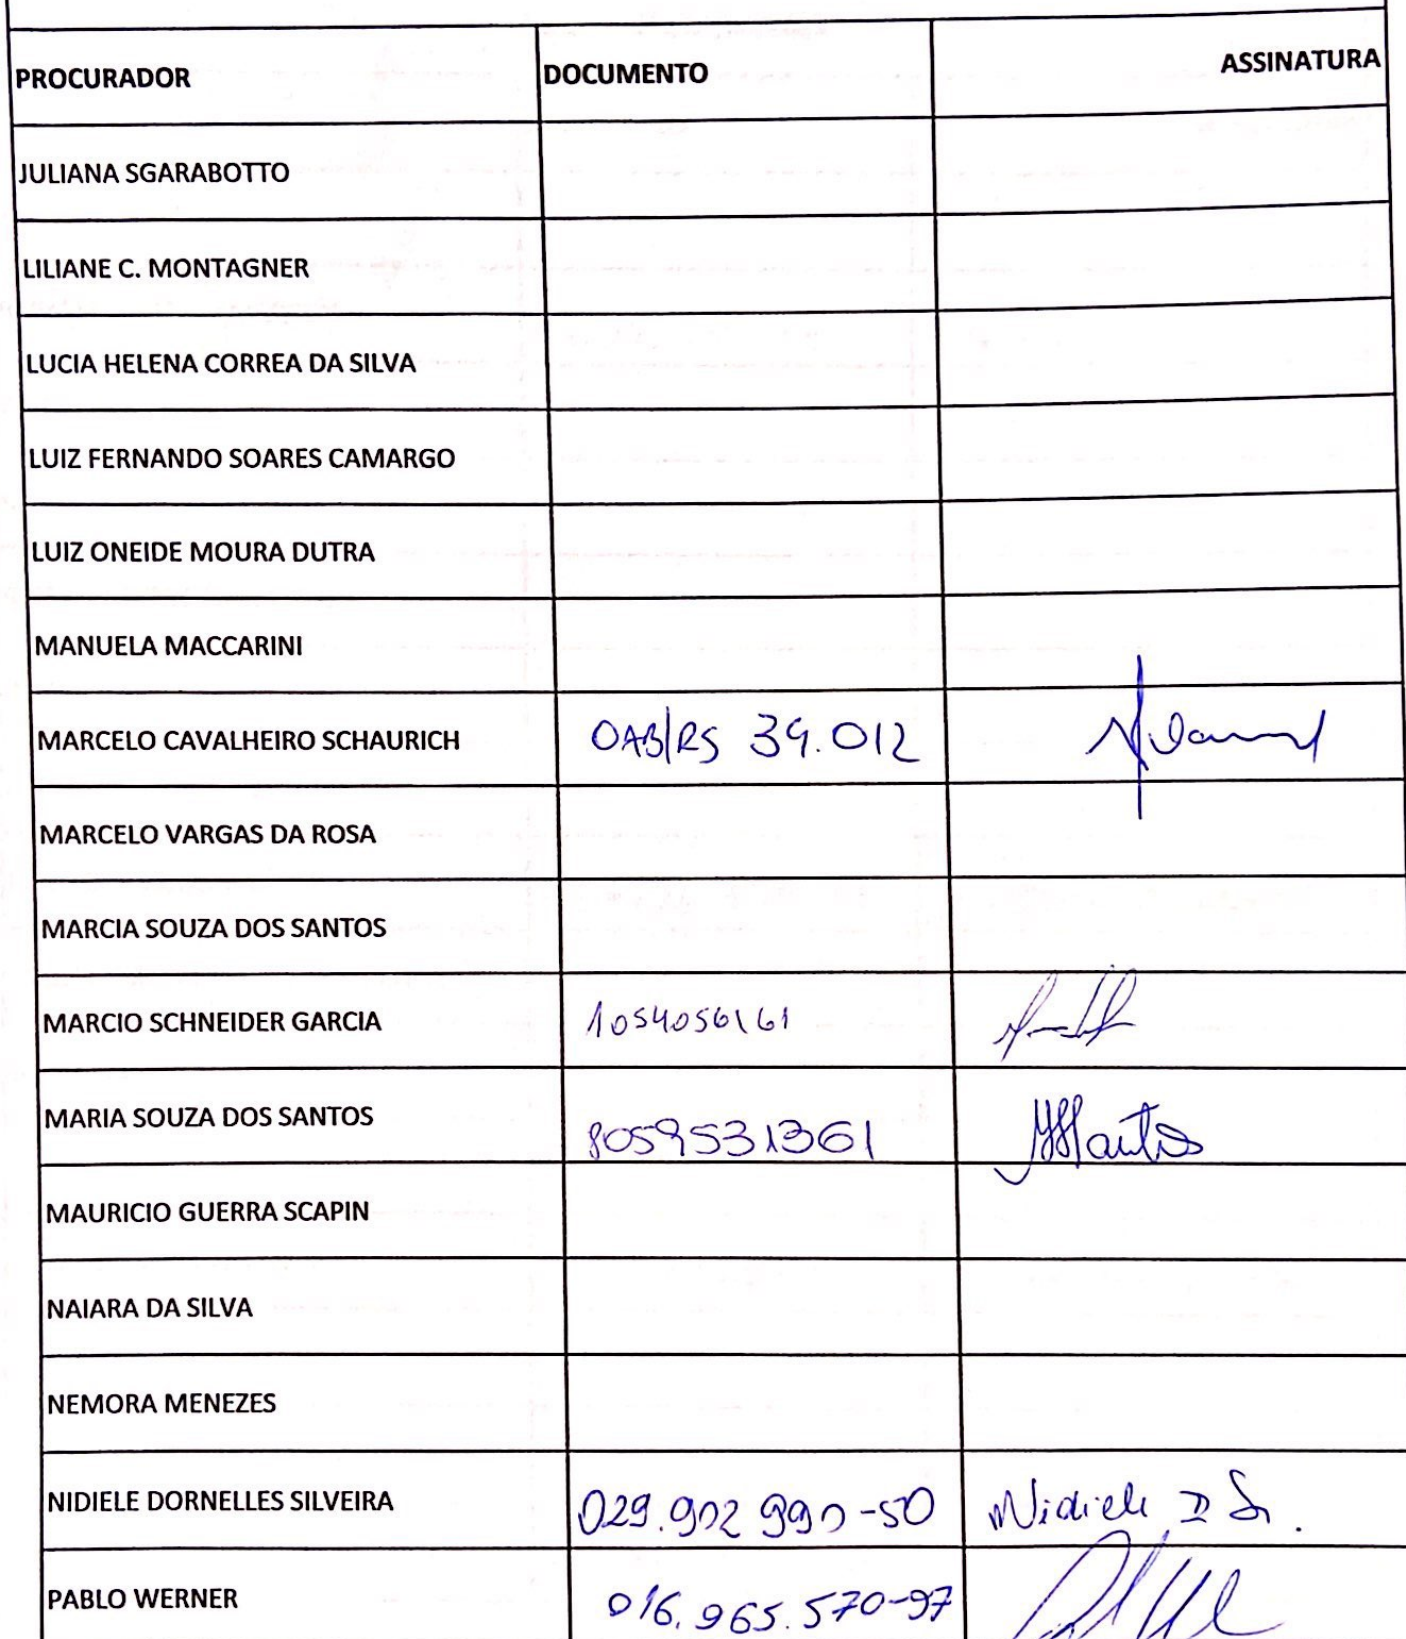 PROCURADOR DOCUMENTO ASSINATURA
JULIANA SGARABOTTO
LILIANE C. MONTAGNER
LUCIA HELENA CORREA DA SILVA
LUIZ FERNANDO SOARES CAMARGO
LUIZ ONEIDE MOURA DUTRA
MANUELA MACCARINI
MARCELO CAVALHEIRO SCHAURICH OAB/RS 39.012
MARCELO VARGAS DA ROSA
MARCIA SOUZA DOS SANTOS
MARCIO SCHNEIDER GARCIA 1054056161
MARIA SOUZA DOS SANTOS 8059531361
MAURICIO GUERRA SCAPIN
NAIARA DA SILVA
NEMORA MENEZES
NIDIELE DORNELLES SILVEIRA 029.902 990-50 Nidiele D S.
PABLO WERNER 016.965.570-97